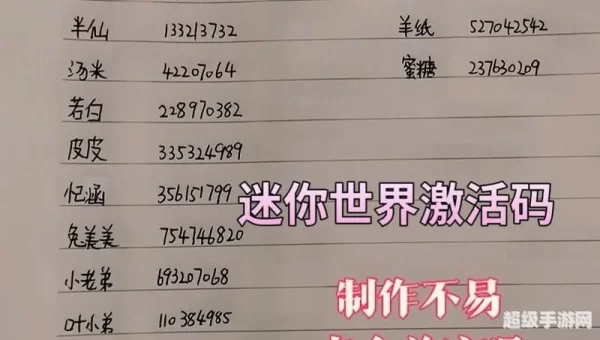 半仙 133213732 羊纸 527042542
汤米 42207064 蜜糖 237630209
若白 228970382
皮皮 335324989
忆涵 356151799
兔美美 754746820
小老弟 693207068
叶小弟 110384985
迷你世界激活码
制作不易
超级手游网